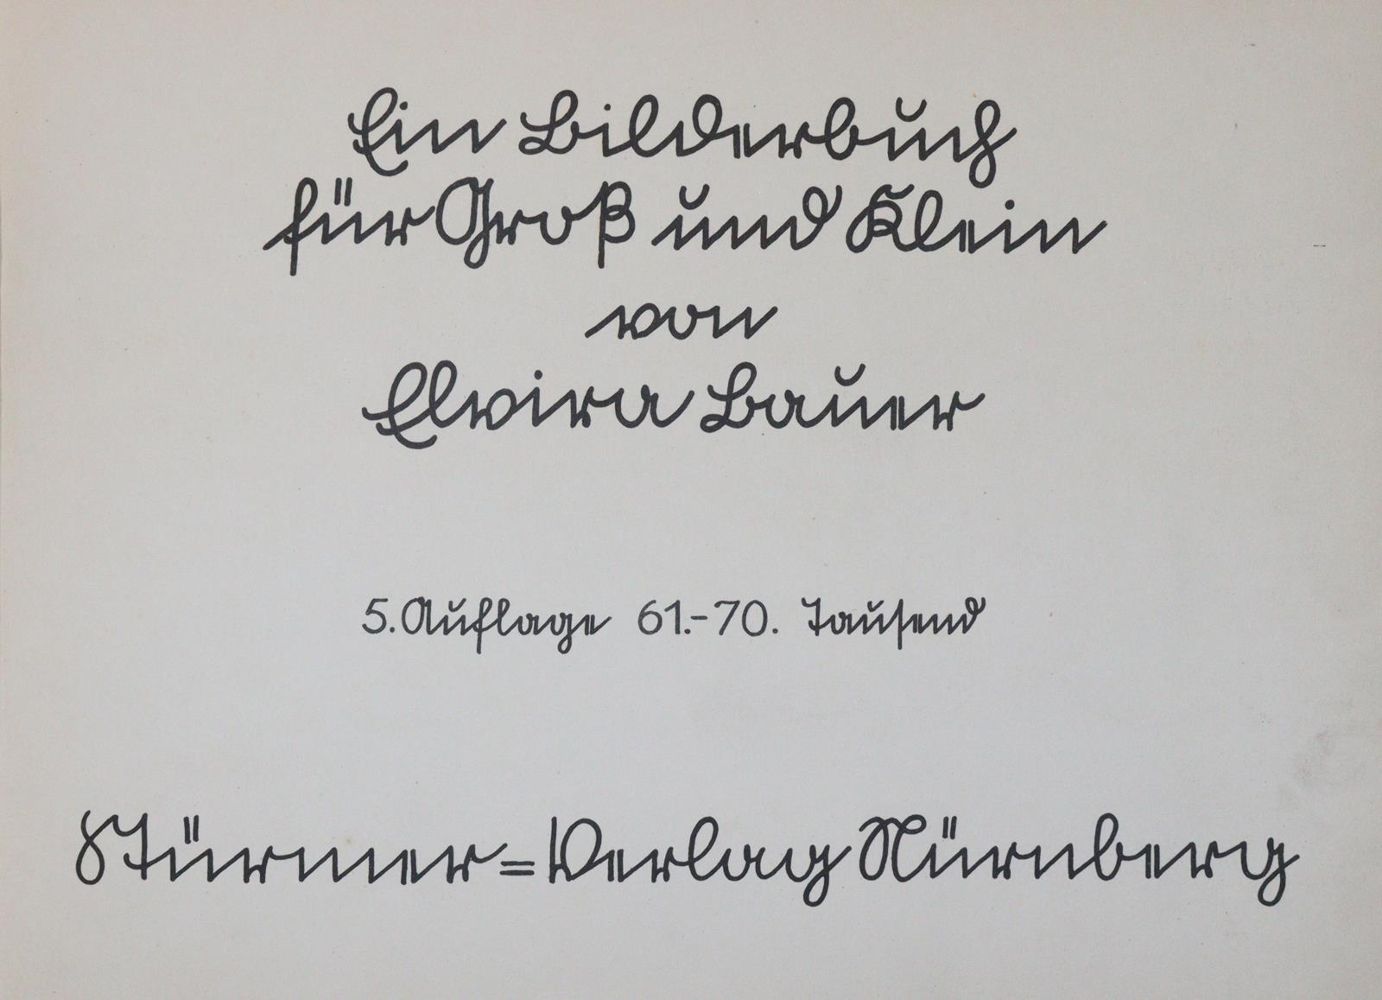 Ein Bilderbuch
für Groß und Klein
von
Elvira Bauer
5. Auflage 61.-70. Tausend
Stürmer=Verlag Nürnberg